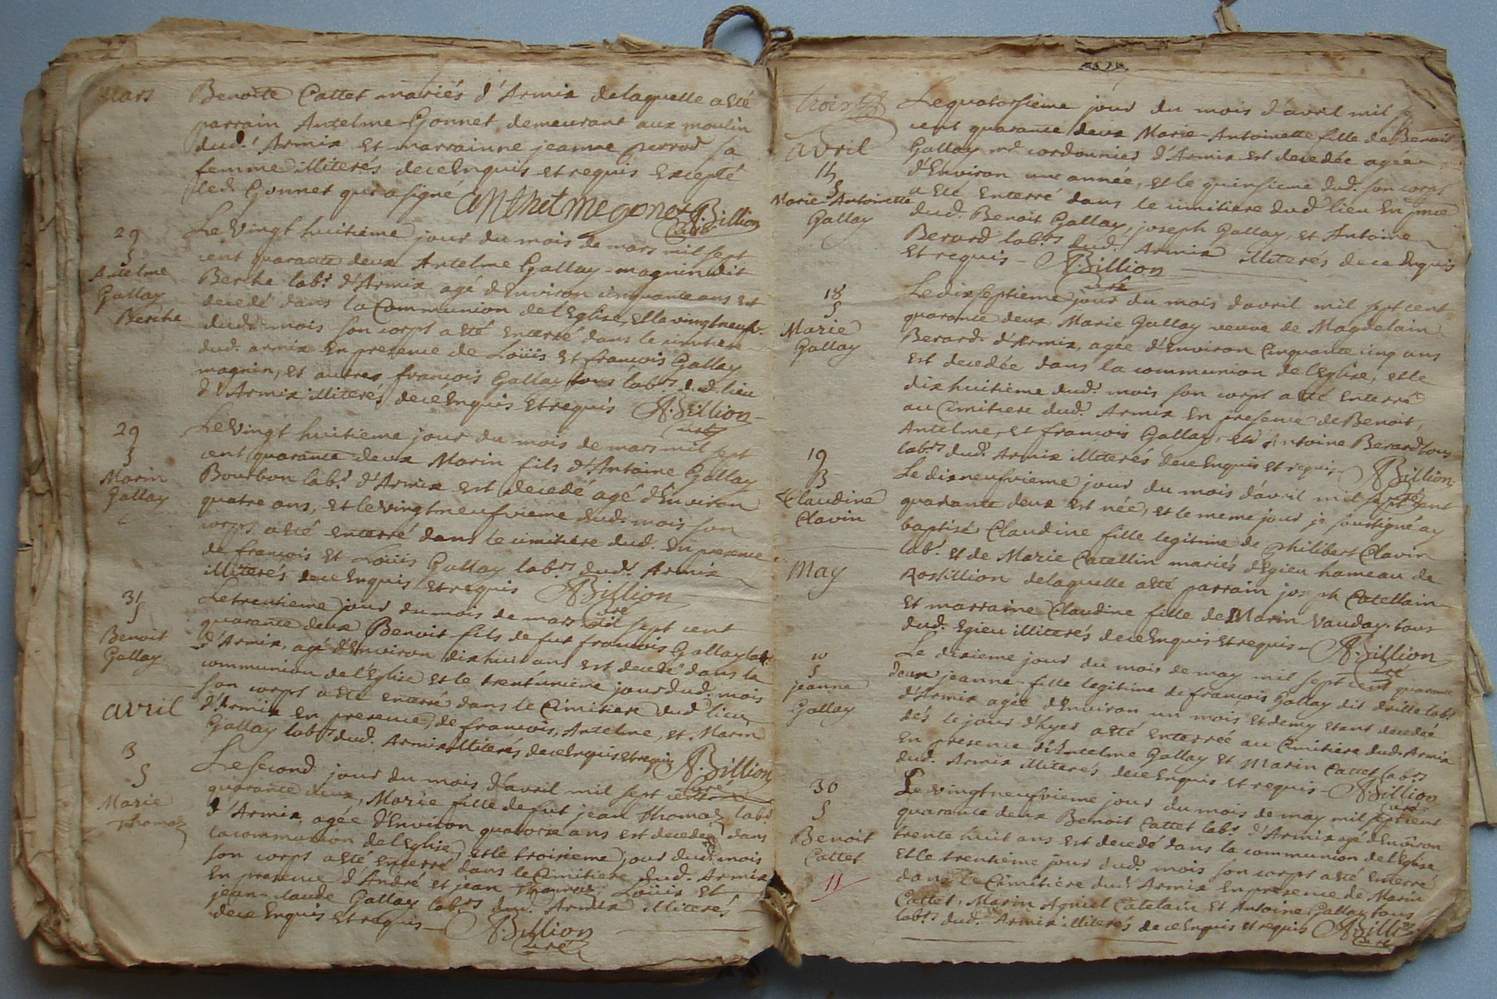 Mars
Benoite Cattet mariés d'Armix delaquelle a eté
parrain Antelme Gonnet, demeurant aux moulin
dud.t Armix et marrainne jeanne perrod sa
femme illiterés de ce Enquis et requis Excepté
led. Gonnet qui a signé
Billion
curé
29
S
Antelme
Gallay
Berche
Le Vingt huitième jour du mois de mars mil sept
cent quarante deux Antelme Gallay-magnin dit
Berche lab.r d'Armix agé d'Environ cinquante ans Est
decedé dans la Communion de l'Eglise, et le vingtneuf
dud. mois son corps a eté Enterré dans le cimitiere
dud. armix En presence de Loüis et françois Gallay
magnin, et autres françois Gallay tous lab.rs d.d. lieu
d'Armix illiterés, de ce Enquis et requis
Billion
curé
29
S
Marin
Gallay
Le Vingt huitieme jour du mois de mars mil sept
cent quarante deux Marin fils d'Antoine Gallay
Bourbon lab.r d'Armix Est decedé agé d'Environ
quatre ans, et le vingtneufvieme dud. mois son
corps a eté enterré dans le cimitiere dud. En presence
de françois et Loüis Gallay lab.rs dud. Armix
illiterés de ce Enquis et requis
Billion
curé
31
S
Benoit
Gallay
Le trentieme jour du mois de mars mil sept cent
quarante deux Benoit fils de fut françois Gallay lab.r
d'Armix, agé d'Environ dixhuit ans Est decedé dans la
communion de l'Eglise et le trent'unième jour dud. mois
son corps a eté enterré dans le Cimitiere dud. lieu
d'Armix En presence de françois, Antelme, et Marin
Gallay lab.rs dud. Armix illiterés, de ce Enquis et requis
Billion
curé
avril
3
S
Marie
Thomaz
Le second jour du mois d'avril mil sept cent
quarante deux, Marie fille de fut jean Thomaz lab.r
d'Armix, agée d'Environ quatorze ans est decedée dans
la communion de l'Eglise, et le troisieme jour dud. mois
son corps a eté Enterré dans le Cimitiere dud. Armix
En presence d'André et jean Thomaz, Loüis et
jean claude Gallay lab.rs dud. Armix illiterés
de ce Enquis et requis
Billion
curé
avril
S
Marie-Antoinette
Gallay
Le quatorsieme jour du mois d'avril mil
cent quarante deux Marie-Antoinette fille de Benoit
Gallay cordonnier d'Armix Est decedée agée
d'Environ une année, et le quinsieme dud. son corps
a eté Enterré dans le cimitiere dud. lieu En
dud. Benoit Gallay, joseph Gallay, et Antoine
Berard lab.rs dud. Armix illiterés de ce Enquis
Et requis
Billion
curé
18
S
Marie
Gallay
Le dixseptieme jour du mois d'avril mil sept cent
quarante deux Marie Gallay veuve de Magdelain
Berard d'Armix, agée d'Environ Cinquante cinq ans
Est decedée dans la communion de l'Eglise, et le
dixhuitieme dud. mois son corps a eté Enterré
au Cimitiere dud. Armix En presence de Benoit,
Antelme, et françois Gallay, et d'Antoine Berard tous
lab.rs dud. Armix illiterés de ce Enquis et requis
Billion
curé
19
B
Claudine
Clavin
Le dixneufvieme jour du mois d'avril mil sept cent
quarante deux est née, et le meme jour je soussigné ay
baptisé Claudine fille legitime de philibert Clavin
lab.r et de Marie Catellin mariés d'Egieu hameau de
Rostillion delaquelle a eté parrain joseph Catellain
Et marraine Claudine fille de Marin Vauday. tous
dud. Egieu illiterés de ce Enquis et requis
Billion
curé
May
10
S
jeanne
Gallay
Le dixieme jour du mois de may mil sept cent quarante
deux jeanne fille legitime de françois Gallay dit drille lab.r
d'Armix agée d'Environ un mois et demy etant decedée
dés le jour d'hyer a eté enterrée au Cimitiere dud. Armix
En presence d'Antelme Gallay et Marin Cattet lab.rs
dud. Armix illiterés de ce Enquis et requis
Billion
curé
30
S
Benoit
Cattet
11
Le Vingtneufvieme jour du mois de may mil sept cent
quarante deux Benoit Cattet lab.r d'Armix agé d'Environ
trente huit ans est decedé dans la communion de l'Eglise
et le trentieme jour dud. mois son corps a eté enterré
dans le Cimitiere dud. Armix En presence de Marin
Cattet, Marin Catelain et Antoine Gallay tous
lab.rs dud. Armix illiterés de ce Enquis et requis
Billion
curé